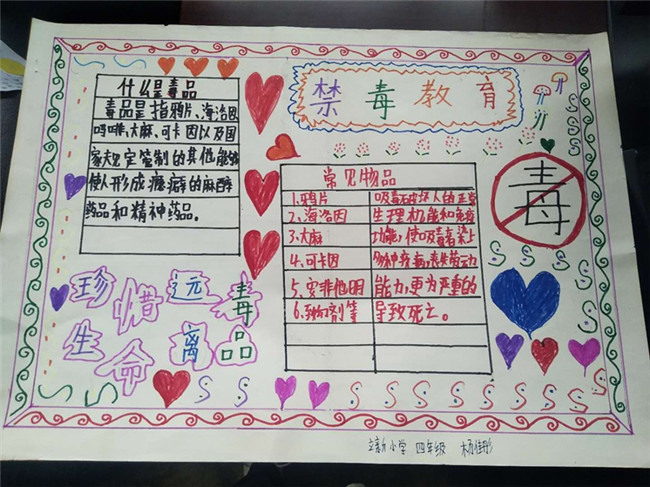 什么是毒品
毒品是指鸦片、海洛因
吗啡、大麻、可卡因以及国
家规定管制的其他能够
使人形成瘾癖的麻醉
药品和精神药品。
禁毒教育
毒
常见物品
1、鸦片
2、海洛因
3、大麻
4、可卡因
5、安非他明
6、致幻剂等
吸毒破坏人的正常
生理机能和免疫
功能，使吸毒者染上
多种疾病，丧失劳动
能力，更为严重的
导致死亡。
珍惜
生命
远离
毒品
立新小学 四年级